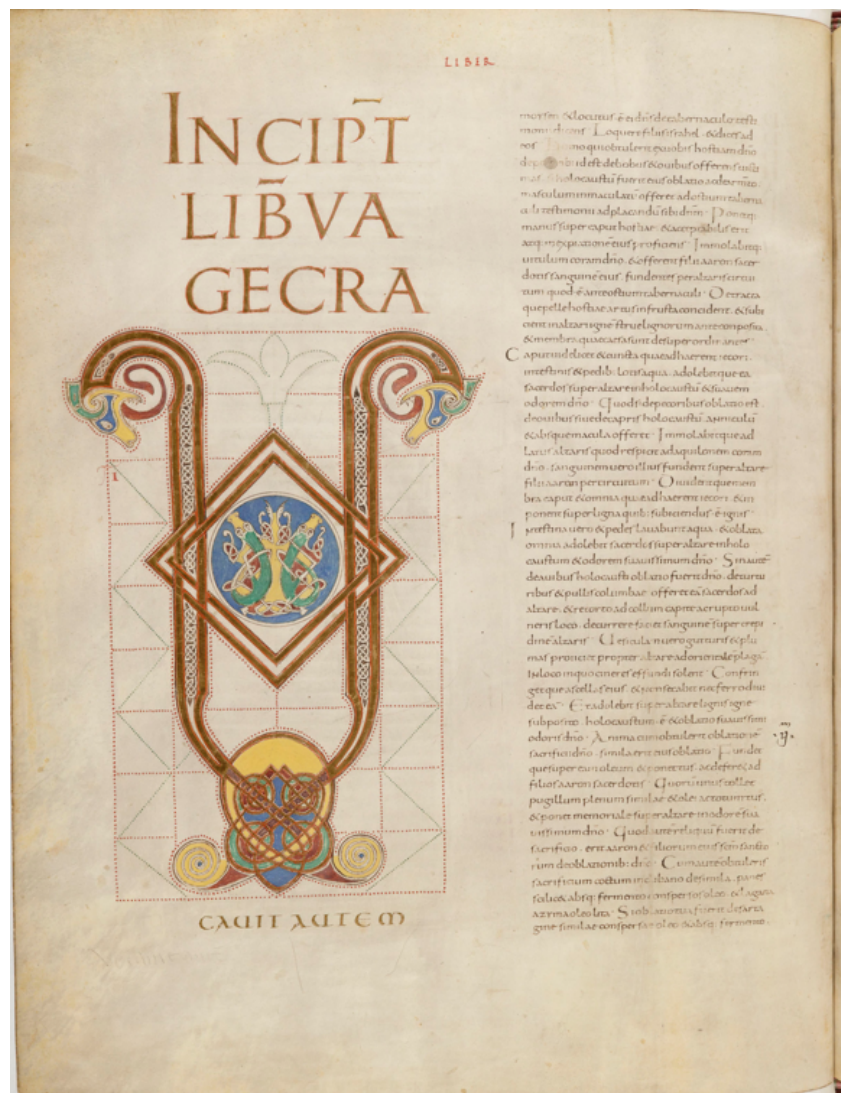 LIBER
INCIP̄T
LIB̄ VA
GECRA
CAUIT AUTEM
moysen & locutus ē ei dn̄s de tabernaculo testi
monii dicens Loquere filiis israhel & dices ad
eos homo qui obtulerit ex uobis hostiam dn̄o
de pecoribus id est de bobus & ouibus offerens uicti
mas si holocaustū fuerit eius oblatio ac de armto
masculum inmaculatū offeret ad ostium taberna
culi testimonii ad placandū sibi dn̄m Ponetq;
manus super caput hostiae & acceptabilis erit
atq; in expiationē eius proficiens Immolabitq;
uitulum coram dn̄o & offerent filii aaron sacer
dotis sanguinē eius fundentes per altaris circui
tum quod ē ante ostium tabernaculi Detracta
que pelle hostiae artus in frusta concident & subi
cient in altari ignē strue lignorum ante conposita
& membra quae caesa sunt desuper ordinantes
Caput uidelicet & cuncta quae adhaerent iecori
intestinis & pedib: lotis aqua adolebitque ea
sacerdos super altare in holocaustū & suauem
odorem dn̄o Quodsi de pecoribus oblatio est
de ouibus siue de capris holocaustū anniculū
& absque macula offeret Immolabitque ad
latus altaris quod respicit ad aquilonem coram
dn̄o sanguinem uero illius fundent super altare
filii aaron per circuitum Diuidentque mem
bra caput & omnia quae adhaerent iecori & in
ponent super ligna quib: subiciendus ē ignis
Intestina uero & pedes lauabunt aqua & oblata
omnia adolebit sacerdos super altare in holo
caustum & odorem suauissimum dn̄o Sin autē
de auibus holocausti oblatio fuerit dn̄o de turtu
ribus & pullis columbae offeret eā sacerdos ad
altare & retorto ad collum capite ac rupto uul
neris loco decurrere faciet sanguinē super crepi
dinē altaris Uesicula uero gutturis & plu
mas proiciet propter altare ad orientalē plagā
in loco in quo cineres effundi solent Confrin
getque ascellas eius & non secabit nec ferro diui
det eā Et adolebit super altare lignis igne
subposito holocaustum ē & oblatio suauissimi
odoris dn̄o Anima cum obtulerit oblationē
sacrificii dn̄o simila erit eius oblatio Fundet
que super eam oleum & ponet tus ac deferet ad
filios aaron sacerdotis Quorum unus tollet
pugillum plenum similae & olei ac totum tus
& ponet memoriale super altare in odorē sua
uissimum dn̄o Quod autē reliquū fuerit de
sacrificio erit aaron & filiorum eius scm̄ sancto
rum de oblationib: dn̄i Cum autē obtuleris
sacrificium coctum in clibano de simila panes
scilic& absq; fermento conspersos oleo & lagana
azyma oleo lita Si oblatio tua fuerit de sarta
gine similae conspersae oleo & absq; fermento